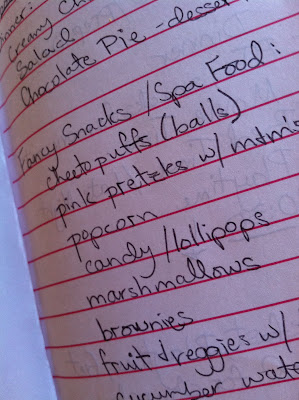 Dinner:
Creamy Ch
Salad
Chocolate Pie - dessert
Fancy Snacks / Spa Food:
cheetopuffs (balls)
pink pretzels w/ m+m's
popcorn
candy/lollipops
marshmallows
brownies
fruit & veggies w/
cucumber wate